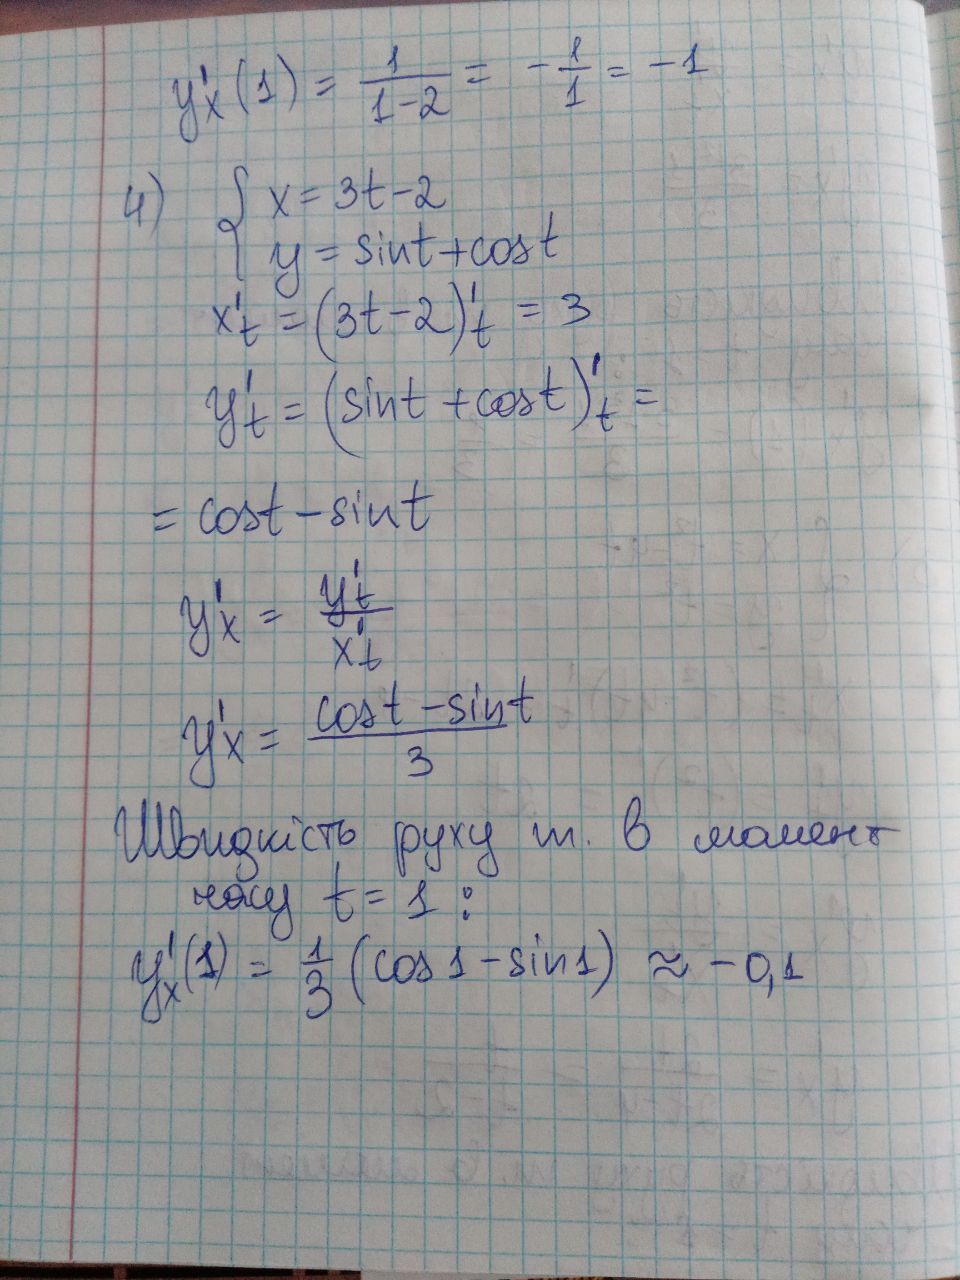 y'x(1) = 1/(1-2) = -1/1 = -1
4) { x = 3t-2
y = sint+cost
x't = (3t-2)'t = 3
y't = (sint+cost)'t =
= cost-sint
y'x = y't/x't
y'x = (cost-sint)/3
Швидкість руху т. в момент
часу t=1:
y'x(1) = 1/3 (cos1-sin1) ≈ -0,1